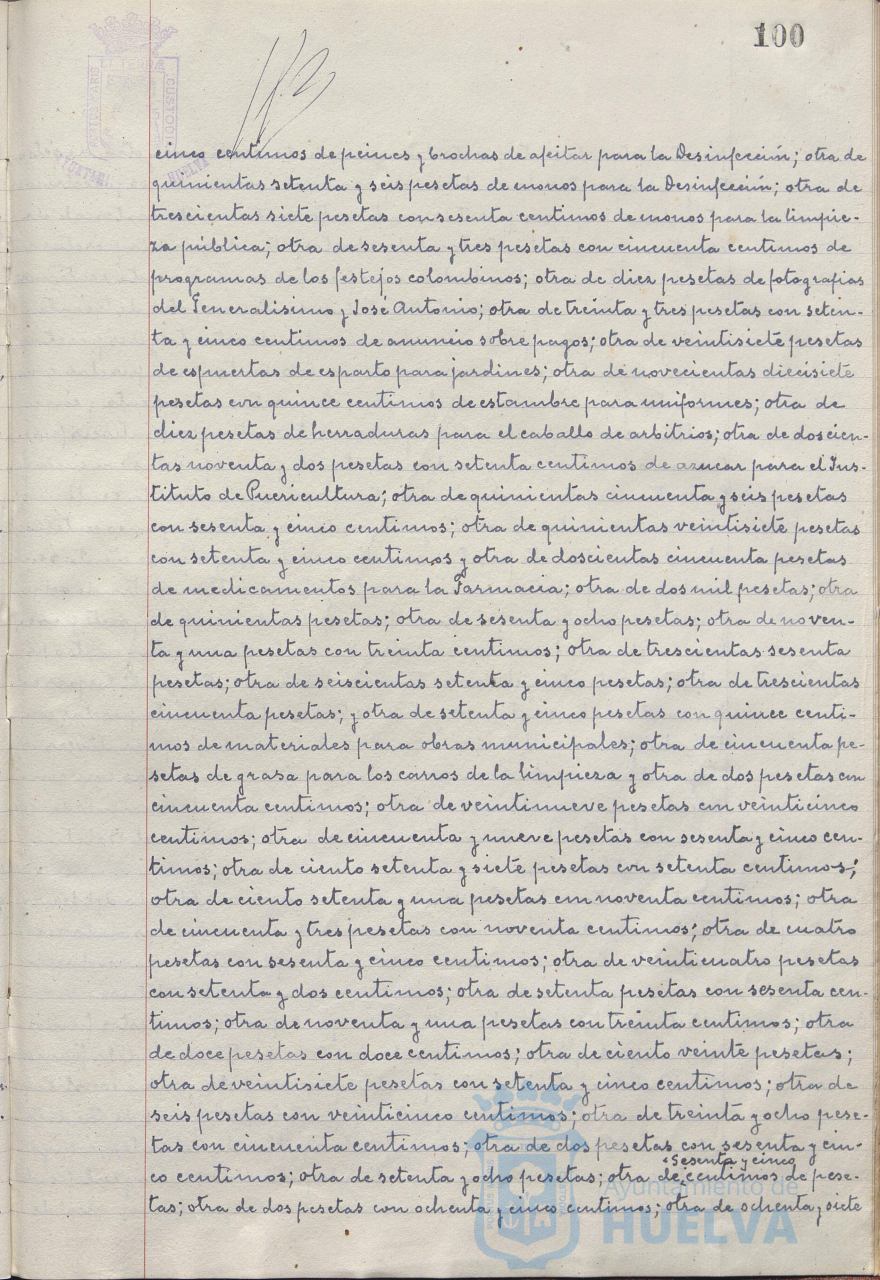 100
cinco centimos de peines y brochas de afeitar para la Desinfección; otra de
quinientas setenta y seis pesetas de monos para la Desinfección; otra de
trescientas siete pesetas con sesenta centimos de monos para la limpie-
za pública; otra de sesenta y tres pesetas con cincuenta centimos de
programas de los festejos colombinos; otra de diez pesetas de fotografias
del Generalisimo y José Antonio; otra de treinta y tres pesetas con seten-
ta y cinco centimos de anuncio sobre pagos; otra de veintisiete pesetas
de espuertas de esparto para jardines; otra de novecientas diecisiete
pesetas con quince centimos de estambre para uniformes; otra de
diez pesetas de herraduras para el caballo de arbitrios; otra de doscien-
tas noventa y dos pesetas con setenta centimos de azucar para el Ins-
tituto de Puericultura; otra de quinientas cincuenta y seis pesetas
con sesenta y cinco centimos; otra de quinientas veintisiete pesetas
con setenta y cinco centimos y otra de doscientas cincuenta pesetas
de medicamentos para la Farmacia; otra de dos mil pesetas; otra
de quinientas pesetas; otra de sesenta y ocho pesetas; otra de noven-
ta y una pesetas con treinta centimos; otra de trescientas sesenta
pesetas; otra de seiscientas setenta y cinco pesetas; otra de trescientas
cincuenta pesetas; y otra de setenta y cinco pesetas con quince centi-
mos de materiales para obras municipales; otra de cincuenta pe-
setas de grasa para los carros de la limpieza y otra de dos pesetas con
cincuenta centimos; otra de veintinueve pesetas con veinticinco
centimos; otra de cincuenta y nueve pesetas con sesenta y cinco cen-
timos; otra de ciento setenta y siete pesetas con setenta centimos;
otra de ciento setenta y una pesetas con noventa centimos; otra
de cincuenta y tres pesetas con noventa centimos; otra de cuatro
pesetas con sesenta y cinco centimos; otra de veinticuatro pesetas
con setenta y dos centimos; otra de setenta pesetas con sesenta cen-
timos; otra de noventa y una pesetas con treinta centimos; otra
de doce pesetas con doce centimos; otra de ciento veinte pesetas;
otra de veintisiete pesetas con setenta y cinco centimos; otra de
seis pesetas con veinticinco centimos; otra de treinta y ocho pese-
tas con cincuenta centimos; otra de dos pesetas con sesenta y cin-
Sesenta y cinco
co centimos; otra de setenta y ocho pesetas; otra de centimos de pese-
tas; otra de dos pesetas con ochenta y cinco centimos; otra de ochenta y siete
Ayuntamiento de
HUELVA